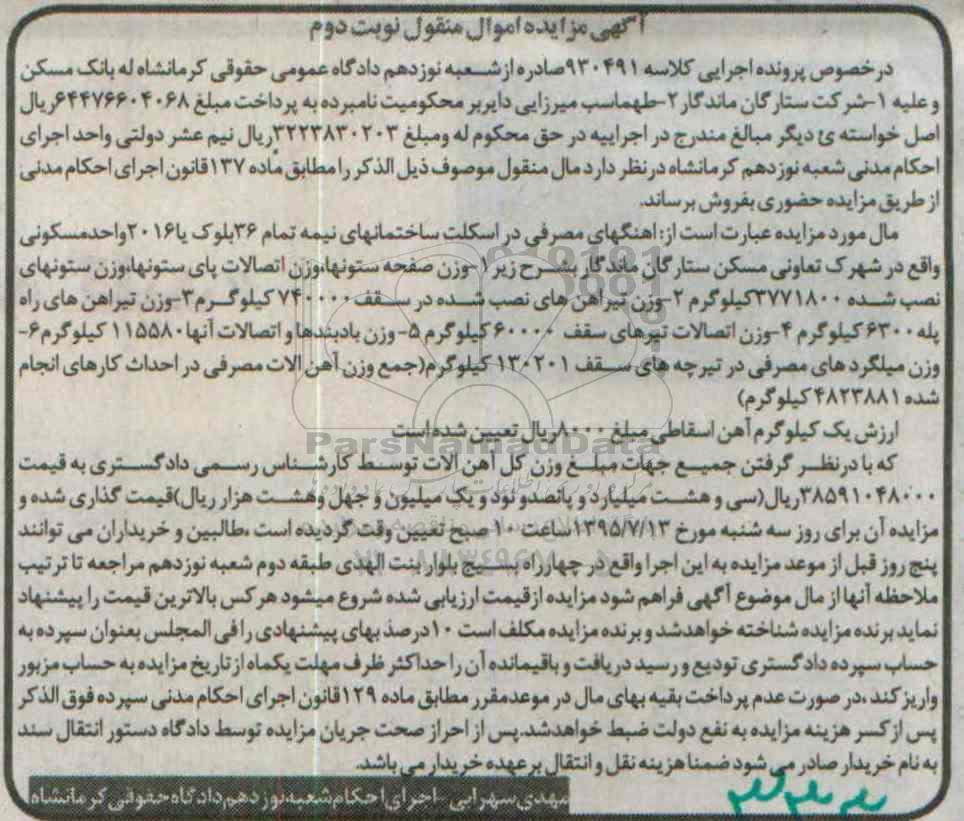 آگهی مزایده اموال منقول نوبت دوم
درخصوص پرونده اجرایی کلاسه ۹۳۰۴۹۱صادره از شعبه نوزدهم دادگاه عمومی حقوقی کرمانشاه له بانک مسکن
و علیه ۱-شرکت ستارگان ماندگار ۲-طهماسب میرزایی دایربر محکومیت نامبرده به پرداخت مبلغ ۶۴۴۷۶۶۰۴۰۶۸ریال
اصل خواسته ئ دیگر مبالغ مندرج در اجراییه در حق محکوم له ومبلغ ۳۲۲۳۸۳۰۲۰۳ریال نیم عشر دولتی واحد اجرای
احکام مدنی شعبه نوزدهم کرمانشاه درنظر دارد مال منقول موصوف ذیل الذکر را مطابق ماده ۱۳۷قانون اجرای احکام مدنی
از طریق مزایده حضوری بفروش برساند.
مال مورد مزایده عبارت است از: اهنگهای مصرفی در اسکلت ساختمانهای نیمه تمام ۳۶بلوک یا۲۰۱۶واحدمسکونی
واقع در شهرک تعاونی مسکن ستارگان ماندگار بشرح زیر ۱-وزن صفحه ستونها،وزن اتصالات پای ستونها،وزن ستونهای
نصب شده ۳۷۷۱۸۰۰کیلوگرم ۲-وزن تیراهن های نصب شده در سقف ۷۴۰۰۰۰ کیلوگرم۳-وزن تیراهن های راه
پله ۶۳۰۰ کیلوگرم ۴-وزن اتصالات تیرهای سقف ۶۰۰۰۰ کیلوگرم ۵- وزن بادبندها و اتصالات آنها ۱۱۵۵۸۰ کیلوگرم۶-
وزن میلگردهای مصرفی در تیرچه های سقف ۱۳۰۲۰۱ کیلوگرم(جمع وزن آهن الات مصرفی در احداث کارهای انجام
شده ۴۸۲۳۸۸۱ کیلوگرم)
ارزش یک کیلوگرم آهن اسقاطی مبلغ ۸۰۰۰ریال تعیین شده است
ParsNamadData
که با درنظر گرفتن جمیع جهات مبلغ وزن کل آهن الات توسط کارشناس رسمی دادگستری به قیمت
۳۸۵۹۱۰۴۸۰۰۰ریال(سی و هشت میلیارد و پانصدو نود و یک میلیون و چهل وهشت هزار ریال)قیمت گذاری شده و
مزایده آن برای روز سه شنبه مورخ ۱۳۹۵/۷/۱۳ساعت ۱۰ صبح تعیین وقت گردیده است ،طالبین و خریداران می توانند
پنج روز قبل از موعد مزایده به این اجرا واقع در چهارراه بسیج بلوار بنت الهدی طبقه دوم شعبه نوزدهم مراجعه تا ترتیب
ملاحظه آنها از مال موضوع آگهی فراهم شود مزایده از قیمت ارزیابی شده شروع میشود هرکس بالاترین قیمت را پیشنهاد
نماید برنده مزایده شناخته خواهدشد و برنده مزایده مکلف است ۱۰درصد بهای پیشنهادی را فی المجلس بعنوان سپرده به
حساب سپرده دادگستری تودیع و رسید دریافت و باقیمانده آن را حداکثر ظرف مهلت یکماه از تاریخ مزایده به حساب مزبور
واریز کند ،در صورت عدم پرداخت بقیه بهای مال در موعدمقرر مطابق ماده ۱۲۹قانون اجرای احکام مدنی سپرده فوق الذکر
پس از کسر هزینه مزایده به نفع دولت ضبط خواهدشد.پس از احراز صحت جریان مزایده توسط دادگاه دستور انتقال سند
به نام خریدار صادر می شود ضمنا هزینه نقل و انتقال بر عهده خریدار می باشد.
مهدی سهرابی - اجرای احکام شعبه نوزدهم دادگاه حقوقی کرمانشاه